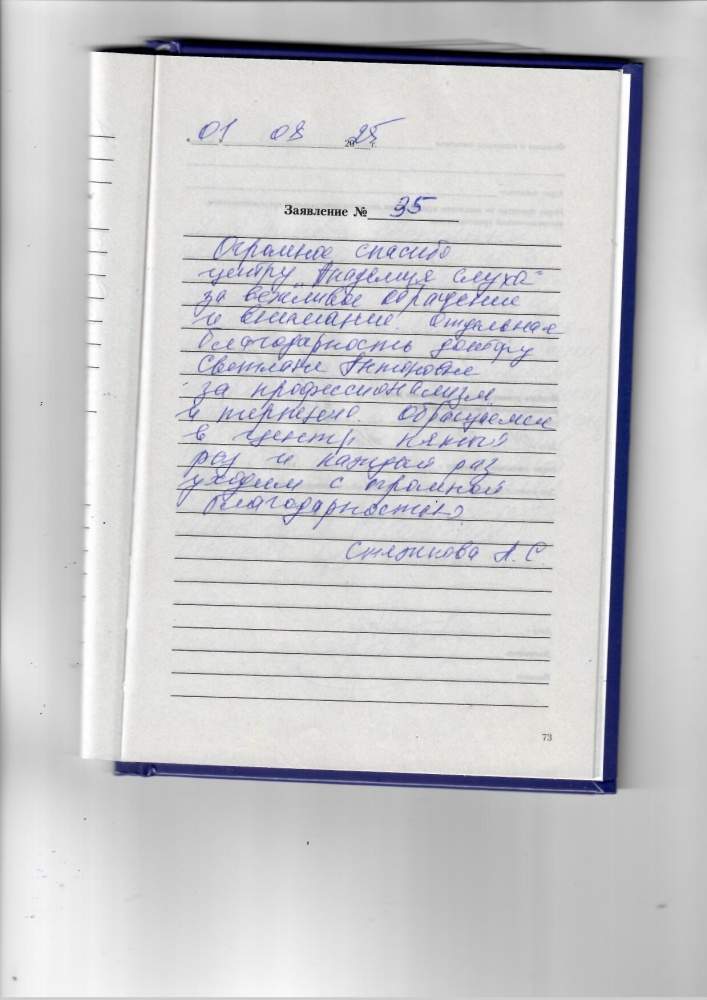 01 08 2025 г.
Заявление № 35
Огромное спасибо
центру „Академия слуха"
за вежливое обращение
и внимание. Отдельная
благодарность доктору
Светлане Викторовне
за профессионализм
и терпение. Обращаемся
в центр не первый
раз и каждый раз
уходим с огромной
благодарностью.
А. С.
73